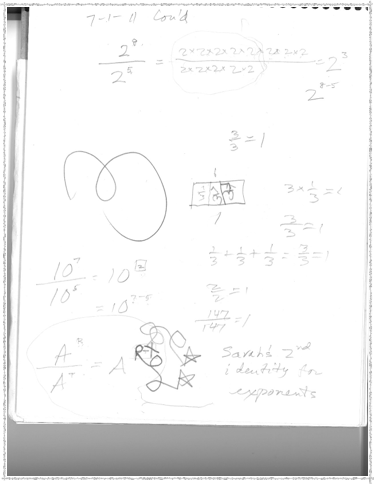 7-1-11
2⁸/2⁵ = 2×2×2×2×2×2×2×2/2×2×2×2×2 = 2³
2⁸⁻⁵
3/3 = 1
1
1/3 1/3 1/3
1
3 × 1/3 = 1
3/3 = 1
1/3 + 1/3 + 1/3 = 3/3 = 1
10⁷/10⁵ = 10²
= 10⁷⁻⁵
2/2 = 1
147/147 = 1
= A
Sarah's 2nd
identity for
exponents